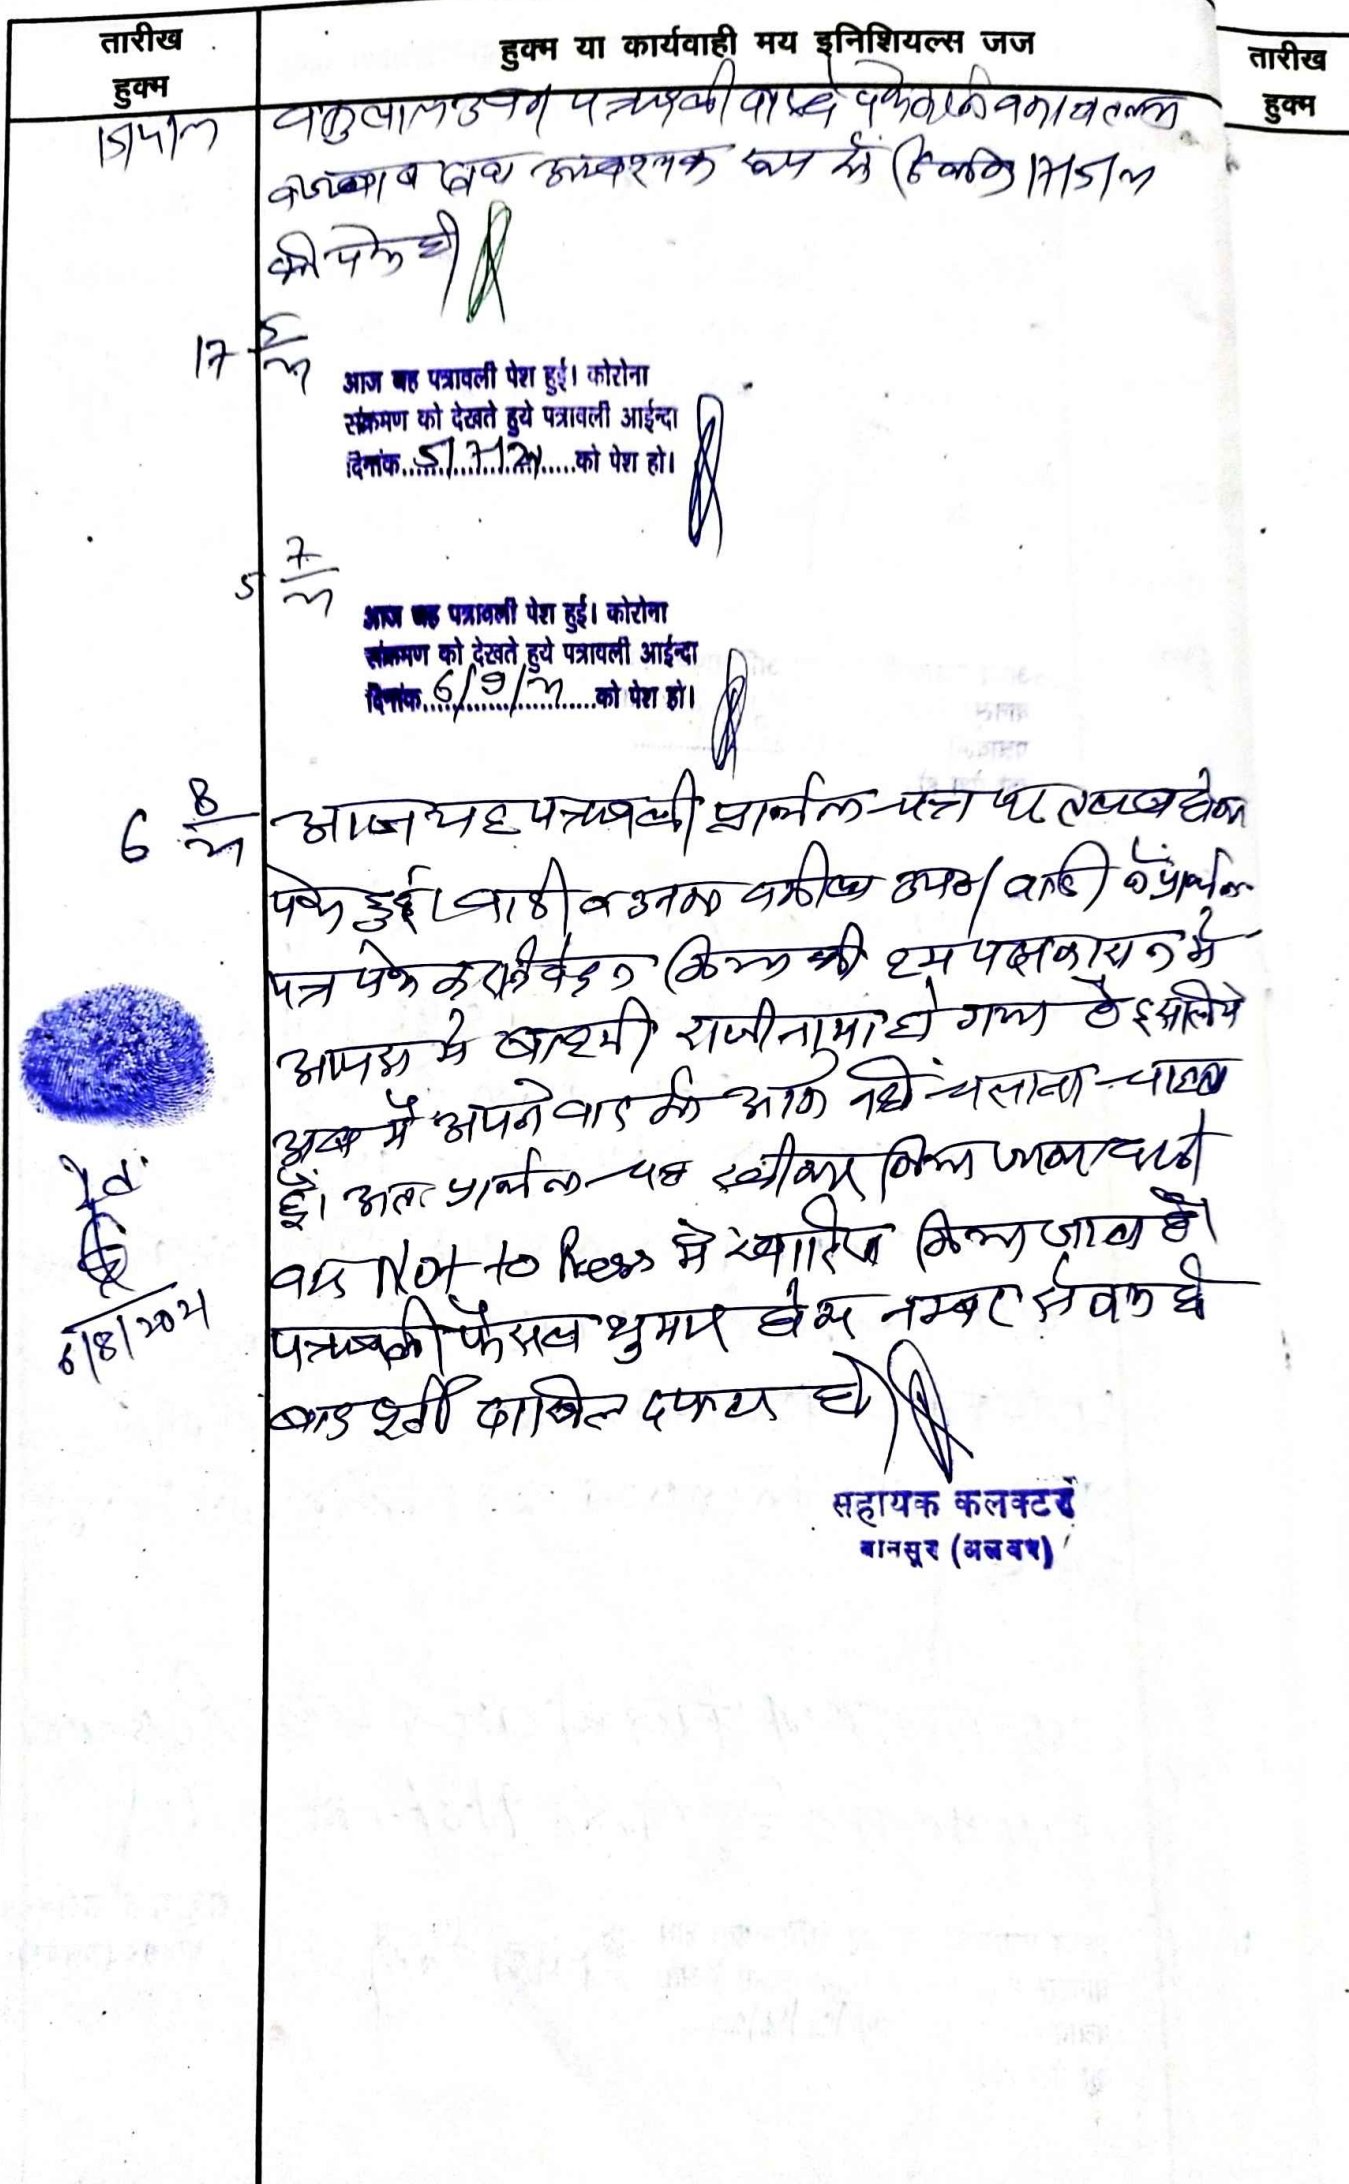 तारीख
हुक्म
हुक्म या कार्यवाही मय इनिशियल्स जज
तारीख
हुक्म
आवश्यक रूप से 17/5/21
को पेश हो
17 5/21
आज यह पत्रावली पेश हुई। कोरोना
संक्रमण को देखते हुये पत्रावली आईन्दा
दिनांक 5/7/21 को पेश हो।
5 7/21
आज यह पत्रावली पेश हुई। कोरोना
संक्रमण को देखते हुये पत्रावली आईन्दा
दिनांक 6/9/21 को पेश हो।
6 8/21
आज यह पत्रावली प्रार्थना पत्र पर तलब होकर
पेश हुई। वादी व उनके वकील उप० वादी ने प्रार्थना
पत्र पेश कर निवेदन किया की हम पक्षकारान में
आपस में बाहमी राजीनामा हो गया है इसलिये
अब मैं अपने वाद को आगे नहीं चलाना चाहता
हूँ। अतः प्रार्थना पत्र स्वीकार किया जाकर वादी
वाद Not to Press में खारिज किया जाता है।
पत्रावली फैसल शुमार होकर नम्बर से कम हो
बाद दाखिल दफ्तर हो
6/8/2021
सहायक कलक्टर
बानसूर (अलवर)